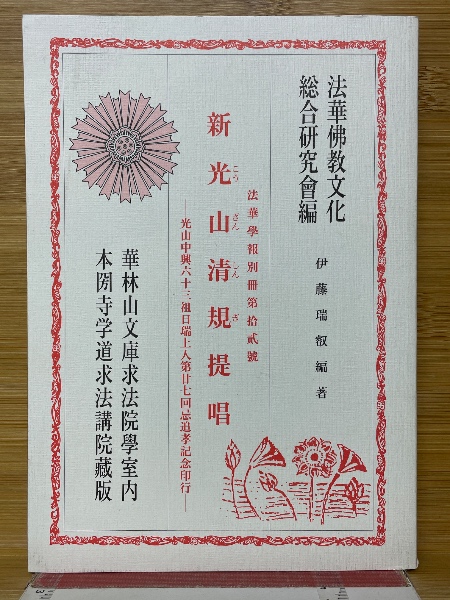 法華佛教文化
総合研究會編
伊藤瑞叡編著
法華學報別冊第拾貳號
新光山清規提唱
こう ざん しん ぎ
―光山中興六十三祖日瑞上人第廿七回忌追孝記念印行―
華林山文庫求法院學室内
本圀寺学道求法講院藏版